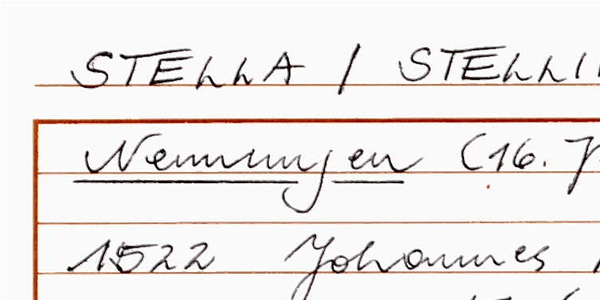 STELLA / STELLI
Nennungen (16. J
1522 Johannes